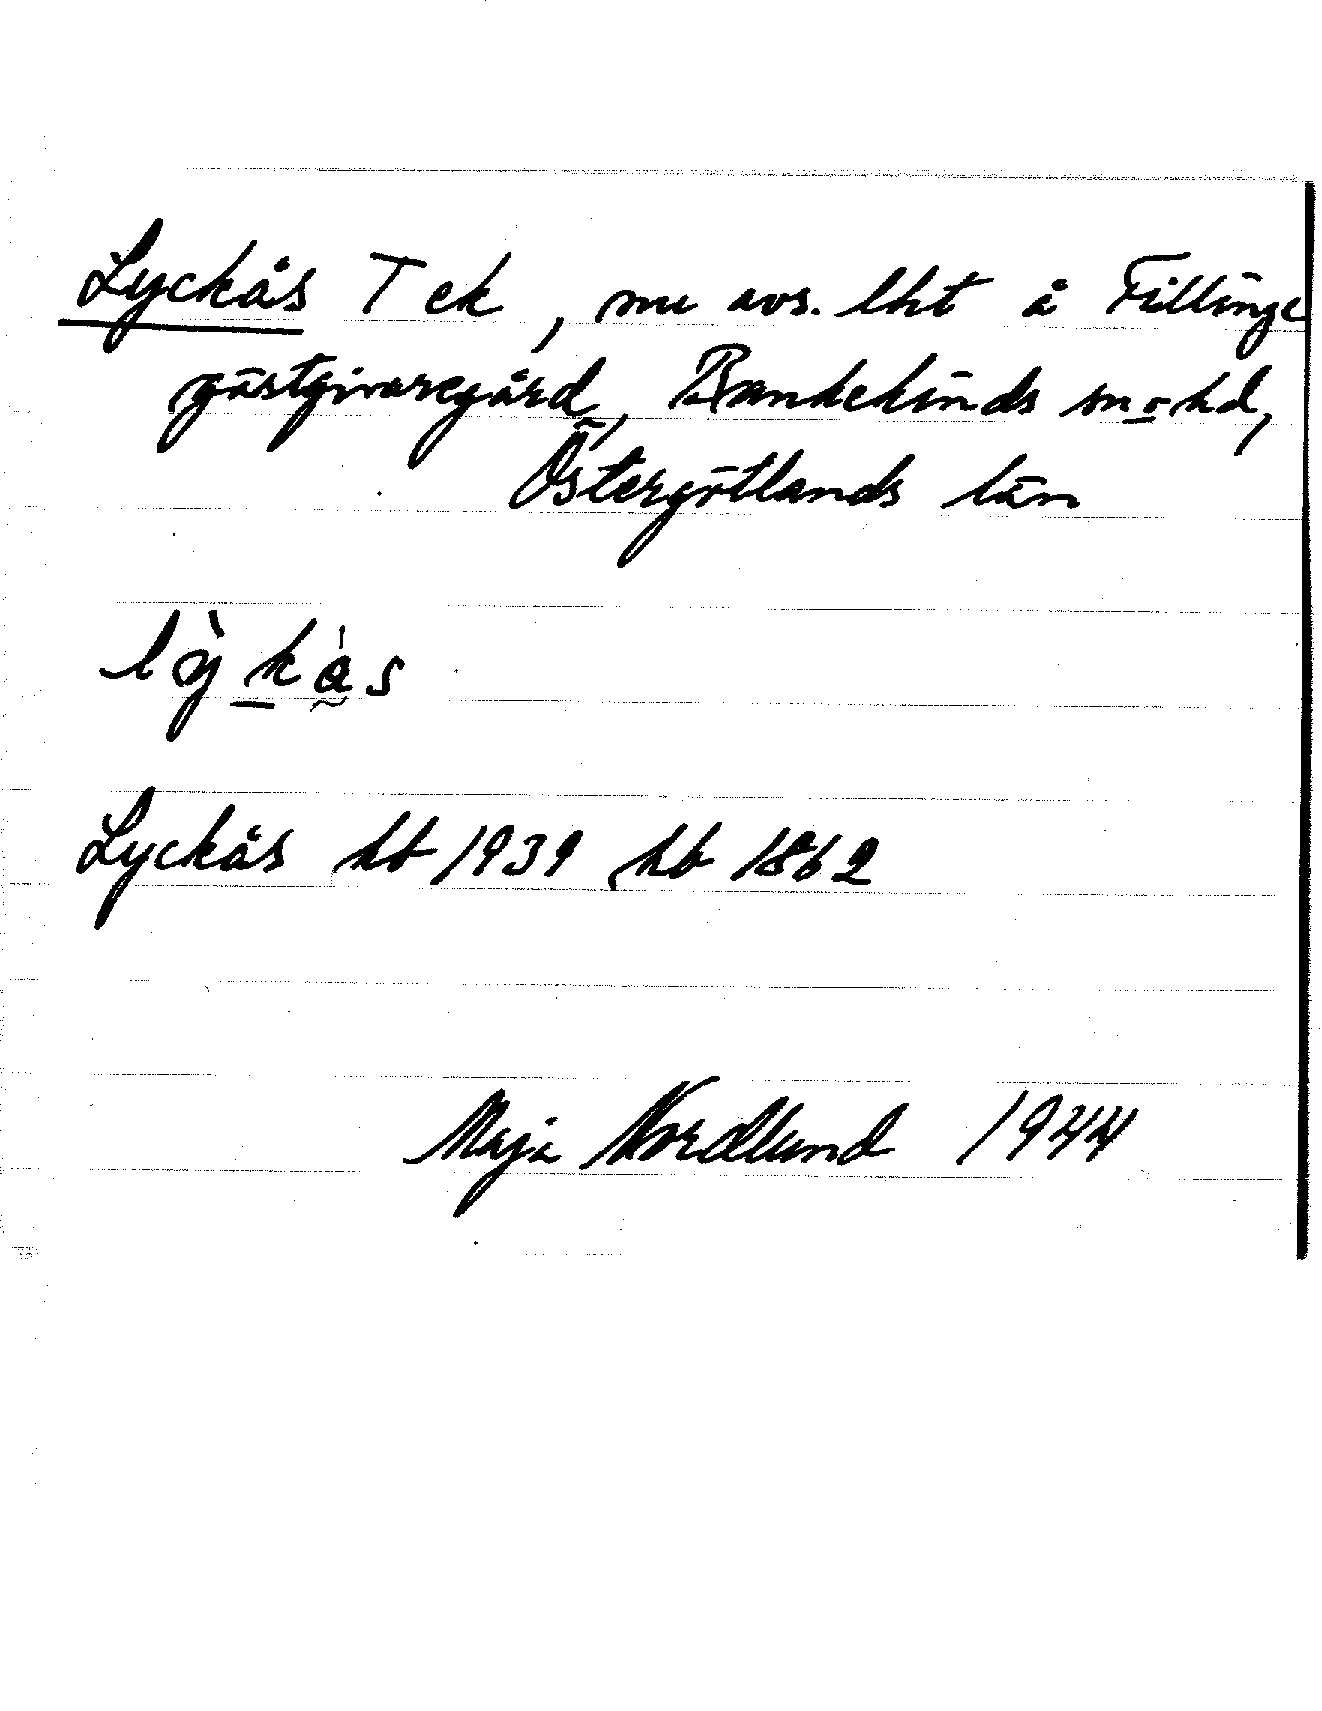 Lyckås T ek, nu avs. lht å Fillinge
gästgivaregård, Bankekinds sn o hd,
Östergötlands län
lỳkås
Lyckås kb 1939 hb 1862
Maja Nordlund 1944